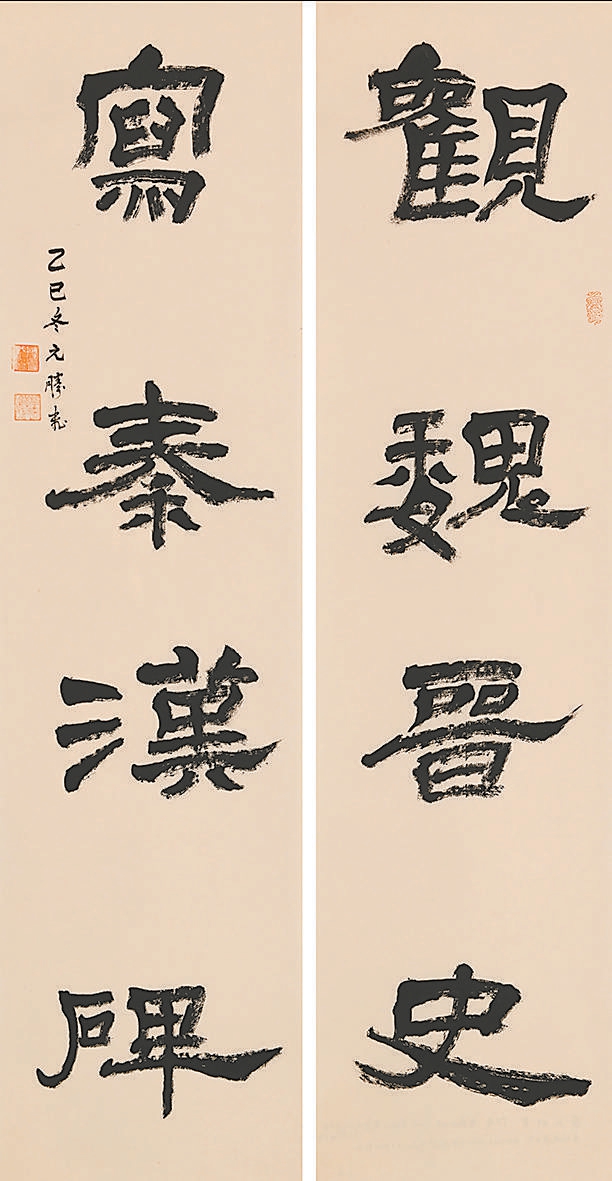 觀魏晉史
寫秦漢碑
乙巳冬元勝書